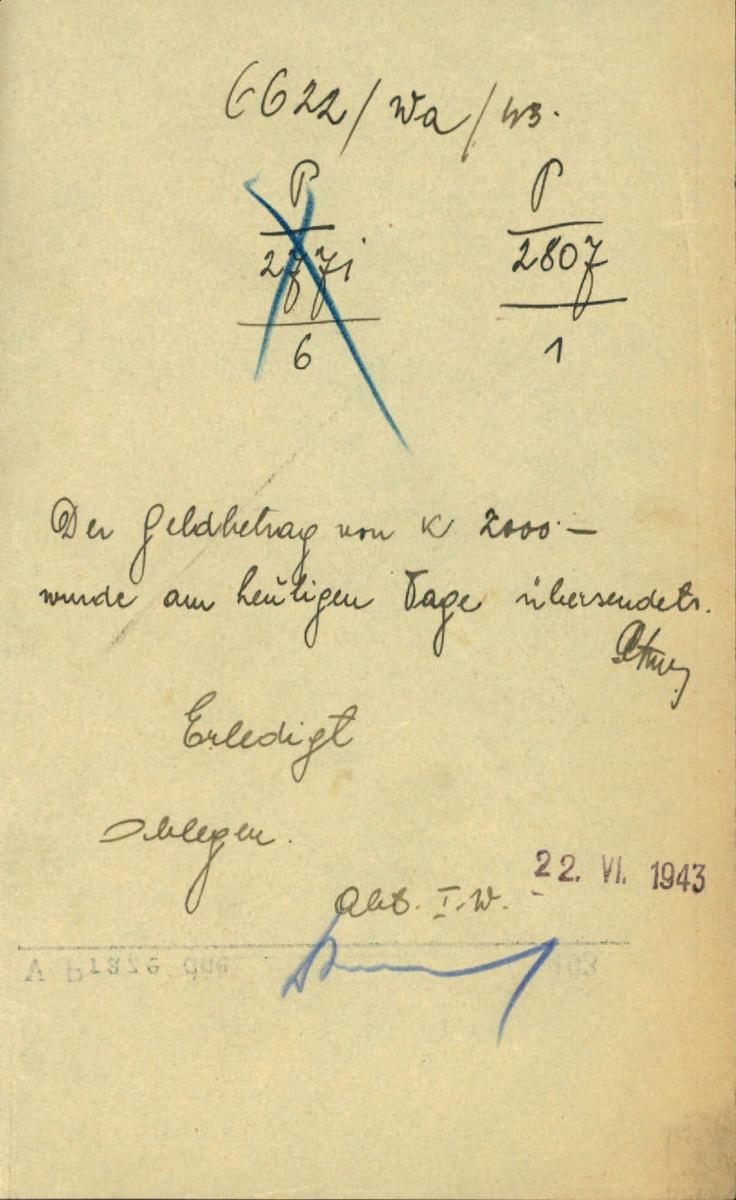 6622/Wa/43.
P P
2771 2807
6 1
Der Geldbetrag von K 2000.—
wurde am heutigen Tage übersendet.
Erledigt
Ablegen.
Abt. I. W. 22. VI. 1943
V Praze dne 193